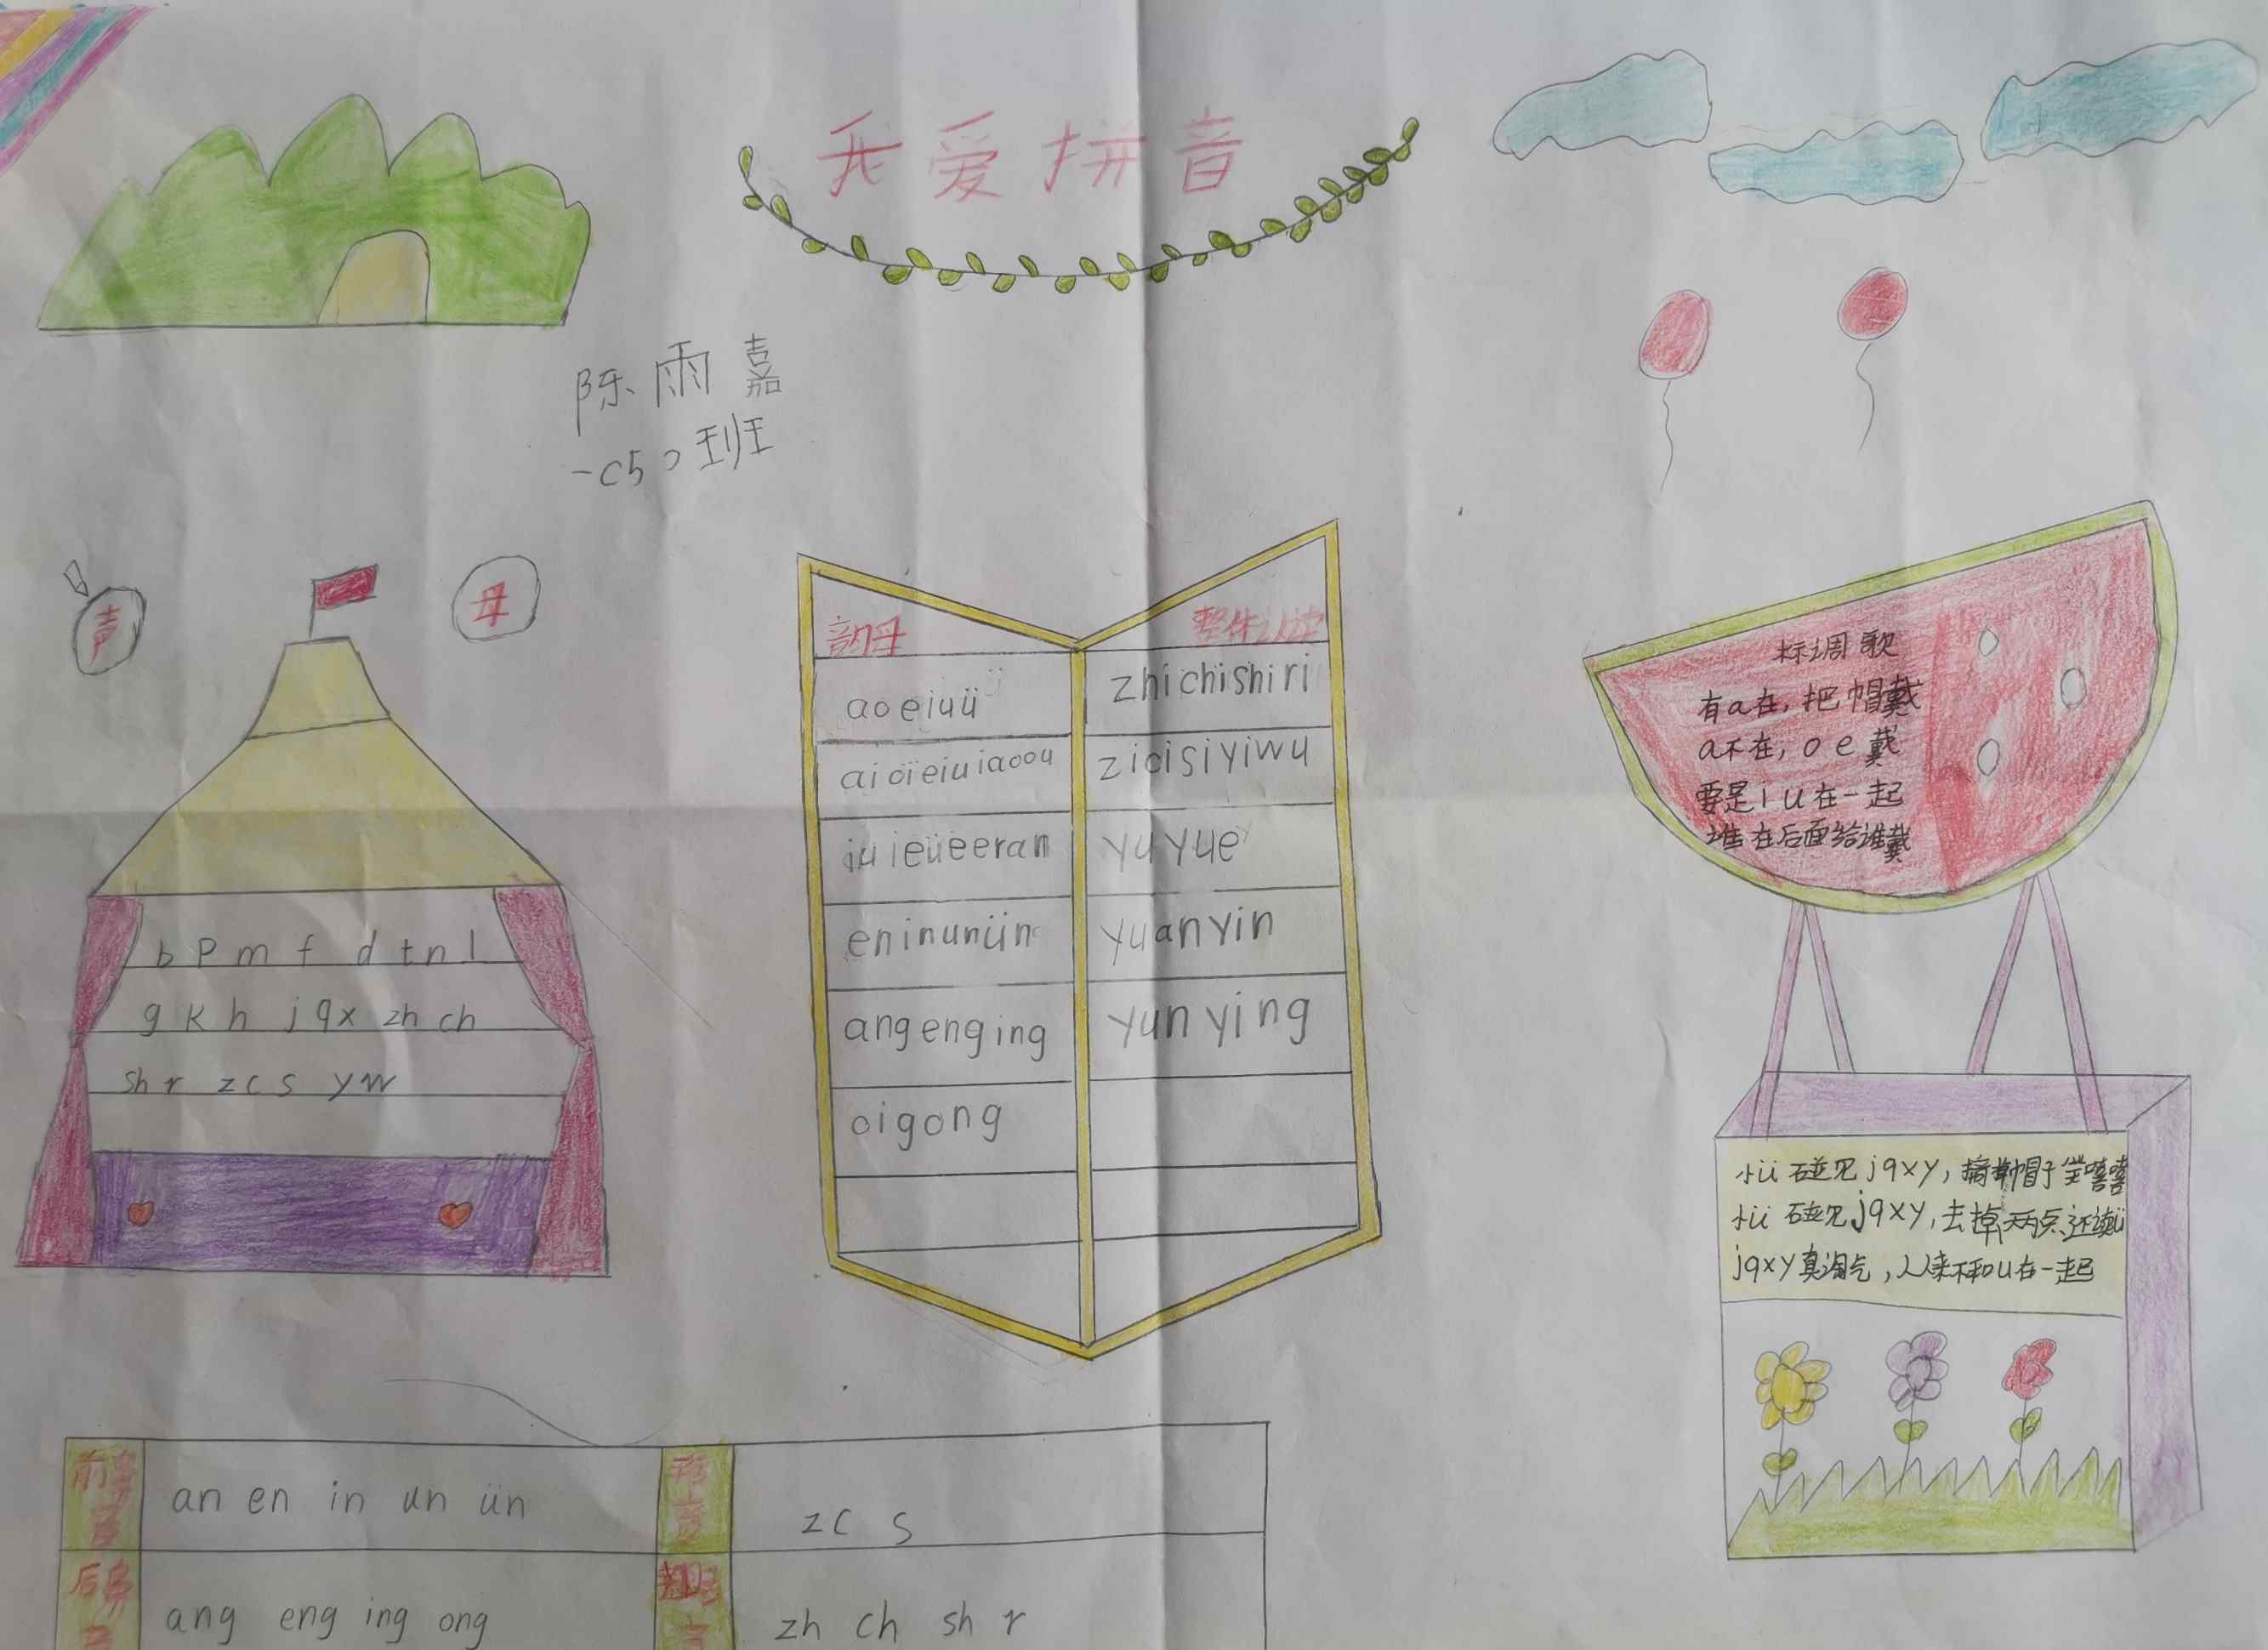 我爱拼音
陈雨嘉
-c50班
声
母
b p m f d t n l
g k h j q x zh ch
sh r z c s y w
韵母
a o e i u ü
ai oi ei ui ao ou
iu ie üe er an
en in un ün
ang eng ing
oig ong
整体认读
zhi chi shi ri
zi ci si yi wu
yu yue
yuan yin
yun ying
标调歌
有a在，把帽戴
a不在，o e戴
要是i u在一起
谁在后面给谁戴
小ü碰见jqxy，摘掉帽子笑嘻嘻
小ü碰见jqxy，去掉两点还读ü
jqxy真淘气，从来不和u在一起
前鼻音
an en in un ün
平舌音
z c s
后鼻音
ang eng ing ong
翘舌音
zh ch sh r